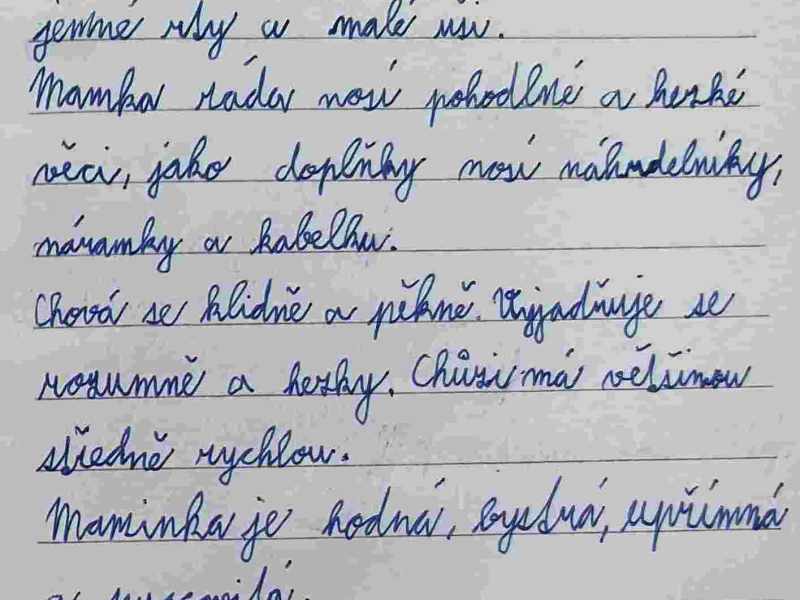 jemné rty a malé uši.
Mamka ráda nosí pohodlné a hezké
věci, jako doplňky nosí náhrdelníky,
náramky a kabelku.
Chová se klidně a pěkně. Vyjadňuje se
rozumně a hezky. Chůzi má většinou
středně rychlou.
Maminka je hodná, bystrá, upřímná
a